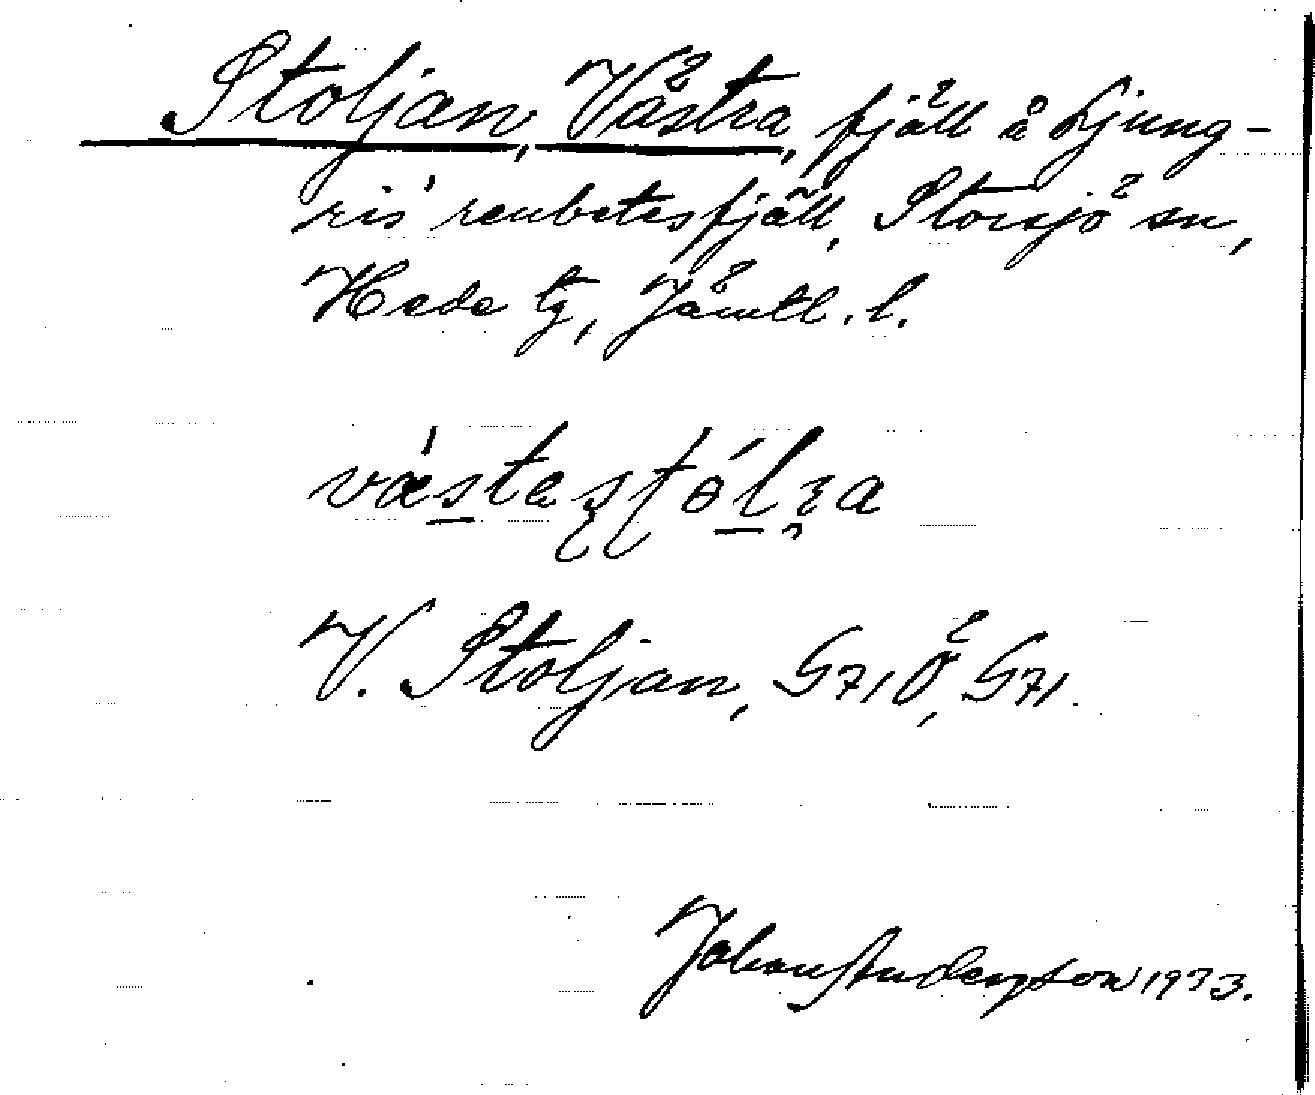 Stoljan, Västra, fjäll å Ljung-
ris' renbetesfjäll, Storsjö sn,
Hede tg, Jämtl. l.
V. Stoljan, G71Ö, G71.
Johan Anderson 1933.